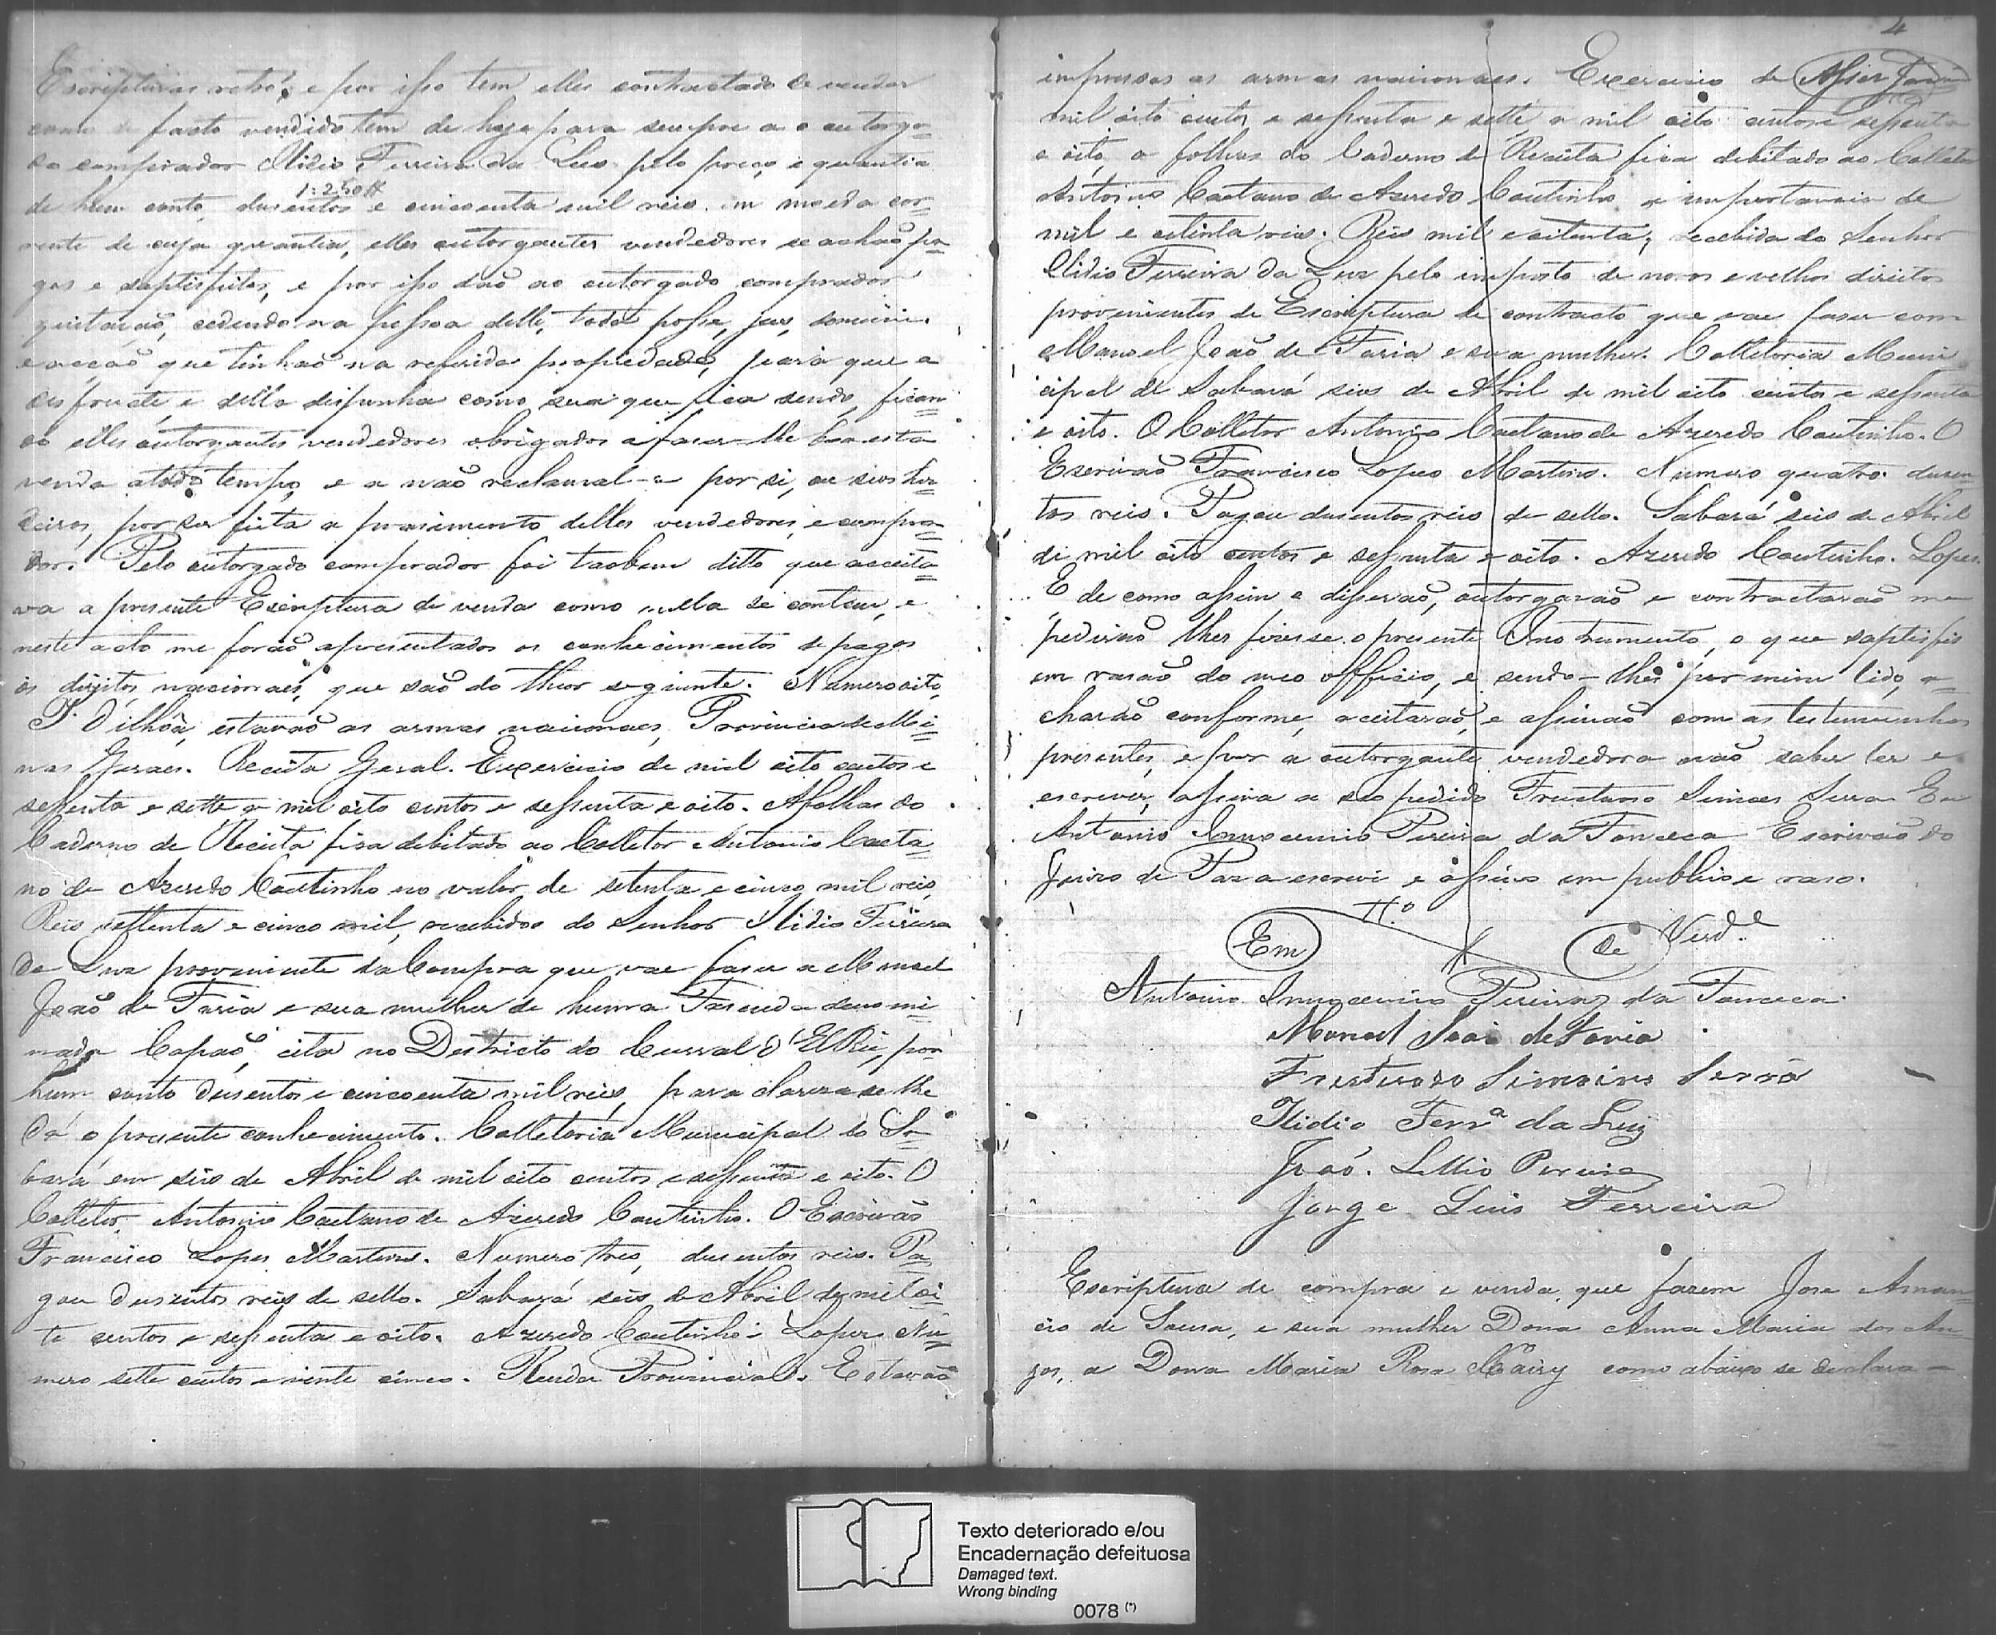 Escripturas retró; e por isso tem elles contractado de vender
como de facto vendido tem de hoje para sempre a o outorga-
do comprador Ilidio Ferreira da Luz pelo preço e quantia
1:250#
de hum conto, dusentos e cincoenta mil reis em moeda cor-
rente de cuja quantia, elles outorgantes vendedores se achão pa-
gos e saptisfeitos, e por isso dão ao outorgado comprador
quitação, cedendo na pessoa delle, toda posse, jus, dominio
e acção que tinhão na referida propriedade, para que a
desfructe e della disponha como sua que fica sendo, fican-
do elles outorgantes vendedores obrigados a faser-lhe boa esta
venda a todo tempo, e a não reclamal-a por si, ou seos her-
deiros, por ser feita a prasimento delles vendedores, e compra-
dor. Pelo outorgado comprador foi taobem ditto que aceita-
va a presente Escriptura de venda como nella se contem, e
neste acto me forão apresentados os conhecimentos de pagos
os direitos nacionaes, que são do theor seguinte: Numero oito,
estavão as armas nacionaes, Provincia de Mi-
nas Geraes. Receita Geral. Exercicio de mil oito centos e
sessenta e sette a mil oito centos e sessenta e oito. A folhas do
Caderno de Receita fica debitado ao Colletor Antonio Caeta-
no de Azeredo Coutinho no valor de setenta e cinco mil reis,
Reis settenta e cinco mil, recebidos do Senhor Ilidio Ferreira
da Luz proveniente da Compra que vae faser a Manoel
João de Faria e sua mulher de huma Fasenda denomi-
nada Capão, cita no Destricto do Curral d'ElRei, por
hum conto dusentos e cincoenta mil reis, para claresa se lhe
dá o presente conhecimento. Colletoria Municipal do Sa-
bará em seis de Abril de mil oito centos e sessenta e oito. O
Colletor, Antonio Caetano de Azeredo Coutinho. O Escrivão
Francisco Lopes Martins. Numero tres, dusentos reis. Pa-
gou dusentos reis de sello. Sabará seis de Abril de mil oi-
to centos e sessenta e oito. Azeredo Coutinho. Lopes. Nu-
mero sette centos e vinte cinco. Renda Provincial. Estavão
4
impressas as armas nacionaes. Exercicio de
mil oito centos e sessenta e sette a mil oito centos e sessenta
e oito, a folhas do Caderno de Receita fica debitado ao Colletor
Antonio Caetano de Azeredo Coutinho a importancia de
mil e oitenta reis. Reis mil e oitenta, recebida do Senhor
Ilidio Ferreira da Luz pelo imposto de novos e velhos direitos
provenientes de Escriptura de contracto que vae faser com
Manoel João de Faria e sua mulher. Colletoria Muni-
cipal de Sabará seis de Abril de mil oito centos e sessenta
e oito. O Colletor Antonio Caetano de Azeredo Coutinho. O
Escrivão Francisco Lopes Martins. Numero quatro. dusen-
tos reis. Pagou dusentos reis de sello. Sabará seis de Abril
de mil oito centos e sessenta e oito. Azeredo Coutinho. Lopes.
E de como assim o disserão, outorgarão e contractarão me
pedirão lhes fizesse o presente Instrumento, o que saptisfis
em rasão do meo officio, e sendo-lhes por mim lido, a-
charão conforme, aceitarão, e assinão com as testemunhas
presentes, e por a outorgante vendedora não saber ler e
escrever, assina a seo pedido Fructuoso Simoes Serra Eu
Antonio Innocencio Pereira da Fonceca Escrivão do
Juiso de Paz a escrevi e assino em publico e raso.
Em Tt.º de Verd.e
Antonio Innocencio Pereira da Fonceca.
Manoel João de Faria
Fructuoso Simoins Serrã
Ilidio Ferrª da Luz
João. Pereira
Jorge Luis Ferreira
Escriptura de compra e venda, que fazem Jose Aman-
cio de Sousa, e sua mulher Dona Anna Maria dos An-
jos, a Dona Maria Rosa como abaixo se declara -
Texto deteriorado e/ou
Encadernação defeituosa
Damaged text.
Wrong binding
0078 (*)